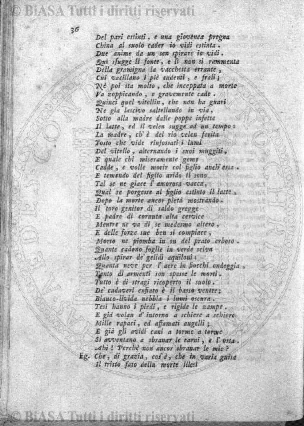 © BiASA Tutti i diritti riservati
36
Del pari estinti, e una giovenca pregna
China al suolo cader io vidi estinta.
Due anime da un sen spirare io vidi.
Qui sfugge il fonte, e lì non si rammenta
Della gramigna la vacchetta errante,
Cui vacillano i piè cadenti, e frali;
Nè poi sta molto, che inceppata a morte
Va zoppicando, e gravemente cade.
Quinci quel vitellin, che non ha guari
Ne gía lascivo saltellando in via,
Sotto alla madre dalle poppe infetta
Il latte, ed il velen sugge ad un tempo:
La madre, ch'è del rio velen ferita
Tosto che vide
Del vitello, alternando i suoi muggiti,
E quale chi miseramente geme
Cadde, e volle morir col figlio
E temendo del figlio arido il seno
Tal se ne giace l'amorosa vacca,
Qual se porgesse al figlio estinto il latte,
Dopo la morte ancor pietà mostrando.
Il toro genitor di saldo gregge
E padre di cornuta alta cervice
Mentre ne va di se medesmo altero
E delle forze sue ben si compiace,
Morto ne piomba in su del prato erboso.
Quante cadono foglie in verde selva
Allo spirar de gelidi aquiloni
Quanta neve per l'aere in fiocchi ondeggia,
Tanto di armenti son spesse le morti
Tutto è di stragi ricoperto il suolo.
De' cadaveri enfiato è il basso ventre:
Bianco-livida nebbia i lumi oscura.
Tesi hanno i piedi, e rigide le zampe.
E già volan d'intorno a schiere a schiere
Mille rapaci, ed affamati augelli;
E già gli avidi cani a torme a torme
Si avventano a sbranar le carni, e l'ossa.
Ahi! Perchè non ancor sbranar le mie?
Eg. Che, di grazia, cos'è, che in varie guise
Il tristo fato della morte
© BiASA Tutti i diritti riservati